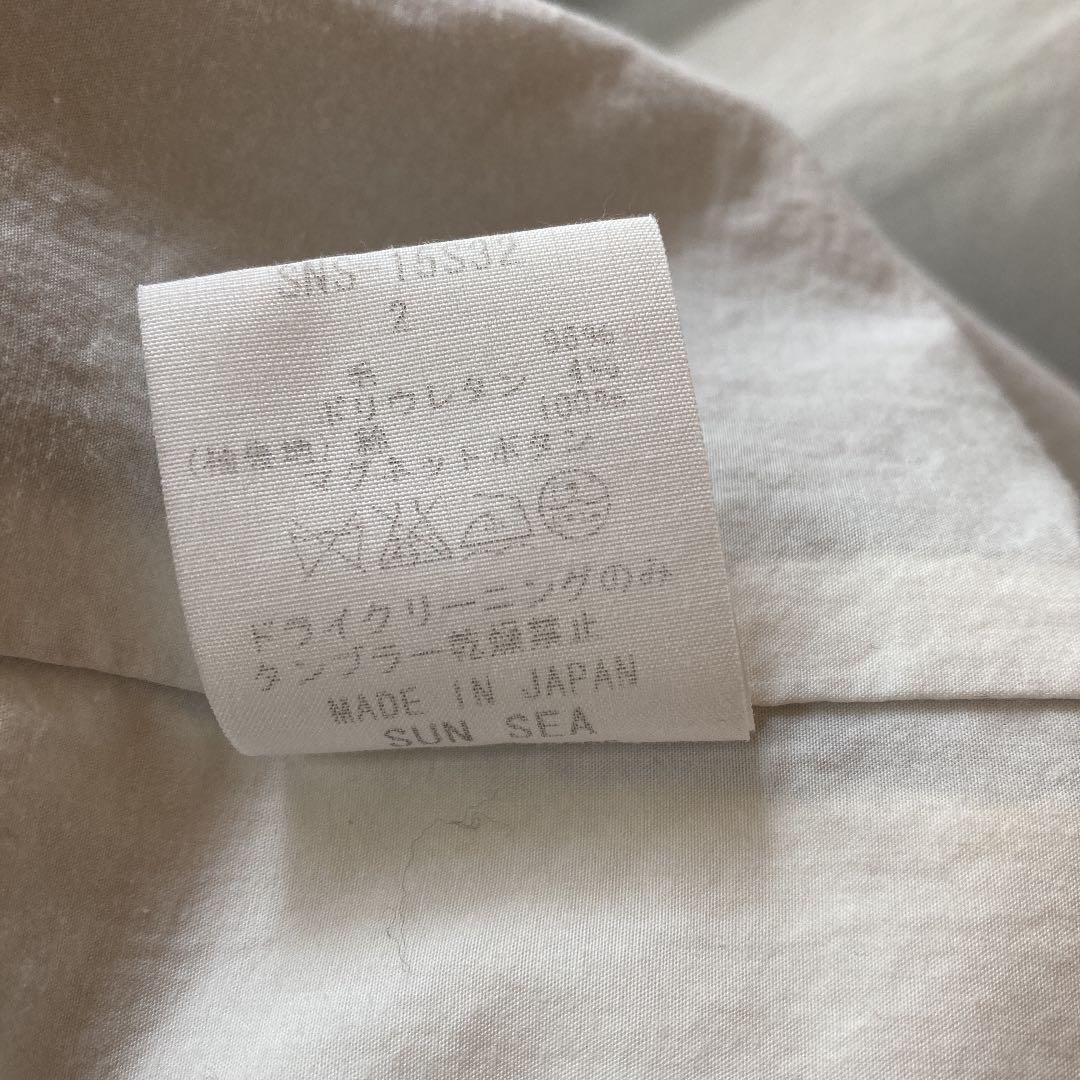 SNS 16S32
2
毛 96%
ポリウレタン 4%
綿 100%
マグネットボタン
ドライクリーニングのみ
タンブラー乾燥禁止
MADE IN JAPAN
SUN SEA